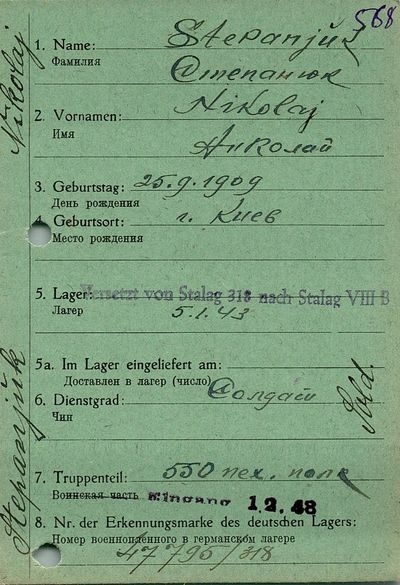 568
1. Name: Stepanjuk
Фамилия Степанюк
2. Vornamen: Nikolaj
Имя Николай
3. Geburtstag: 25.9.1909
День рождения
4. Geburtsort: г. Киев
Место рождения
5. Lager: Versetzt von Stalag 318 nach Stalag VIII B
Лагер 5.1.43
5a. Im Lager eingeliefert am:
Доставлен в лагер (число)
6. Dienstgrad: Солдат
Чин
Sold.
7. Truppenteil: 550 пех. полк
Воинская часть Eingang 1.2.43
8. Nr. der Erkennungsmarke des deutschen Lagers:
Номер военнопленного в германском лагере
47795/318
Stepanjuk Nikolaj